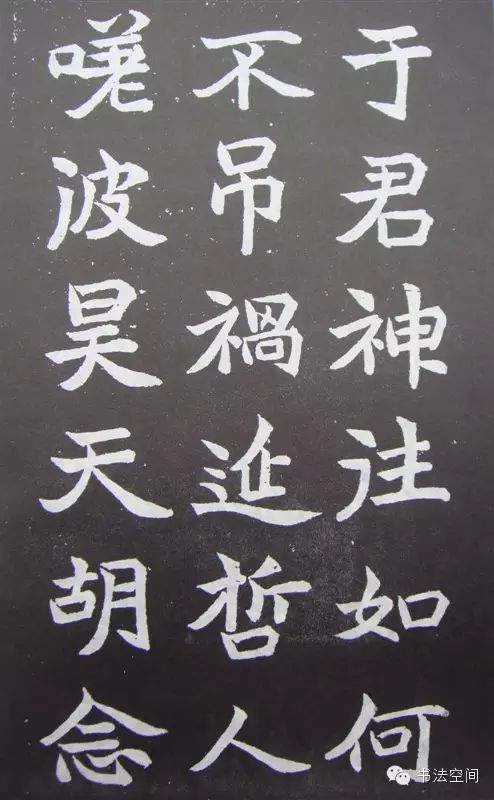 于君神往如何
不吊禍延哲人
嗟彼昊天胡念
书法空间